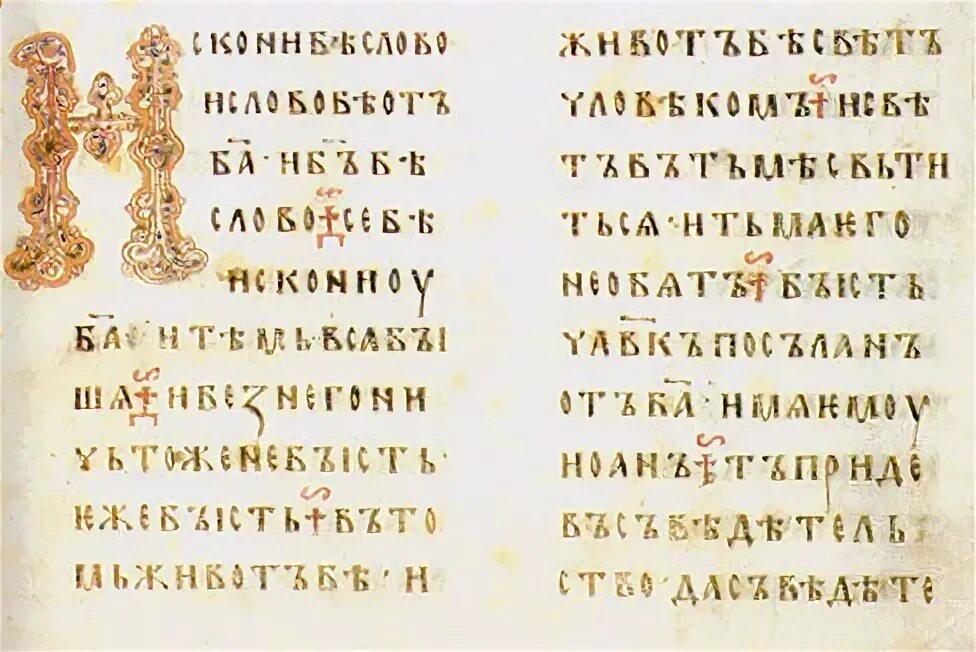 Искони бѣ слово
и слово бѣ отъ
б҃а · и б҃ъ бѣ
слово + се бѣ
искони оу
б҃а · и тѣмь вса бꙑ
шѧ + и без него ни
чьтоже не бꙑсть ·
ѥже бꙑсть + въ то
мь животъ бѣ · и
животъ бѣ свѣтъ
чловѣкомъ + и свѣ
тъ въ тьмѣ свьти
тьсѧ · и тьма ѥго
не обѧтъ + бꙑсть
чл҃вкъ посъланъ
отъ б҃а · имѧ ѥмоу
иоанъ + тъ приде
въ съвѣдѣтель
ство · да съвѣдѣте